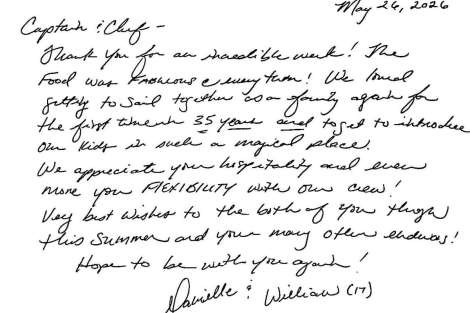 May 26, 2026
Captain & Chef -
Thank you for an incredible week! The
Food was every turn! We loved
getting to sail together as a family again for
the first time in 35 years and to get to introduce
our kids in such a magical place.
We appreciate your hospitality and even
more your FLEXIBILITY with our crew!
Very best wishes to the both of you through
this summer and your many other !
Hope to be with you again!
Danielle & William (17)